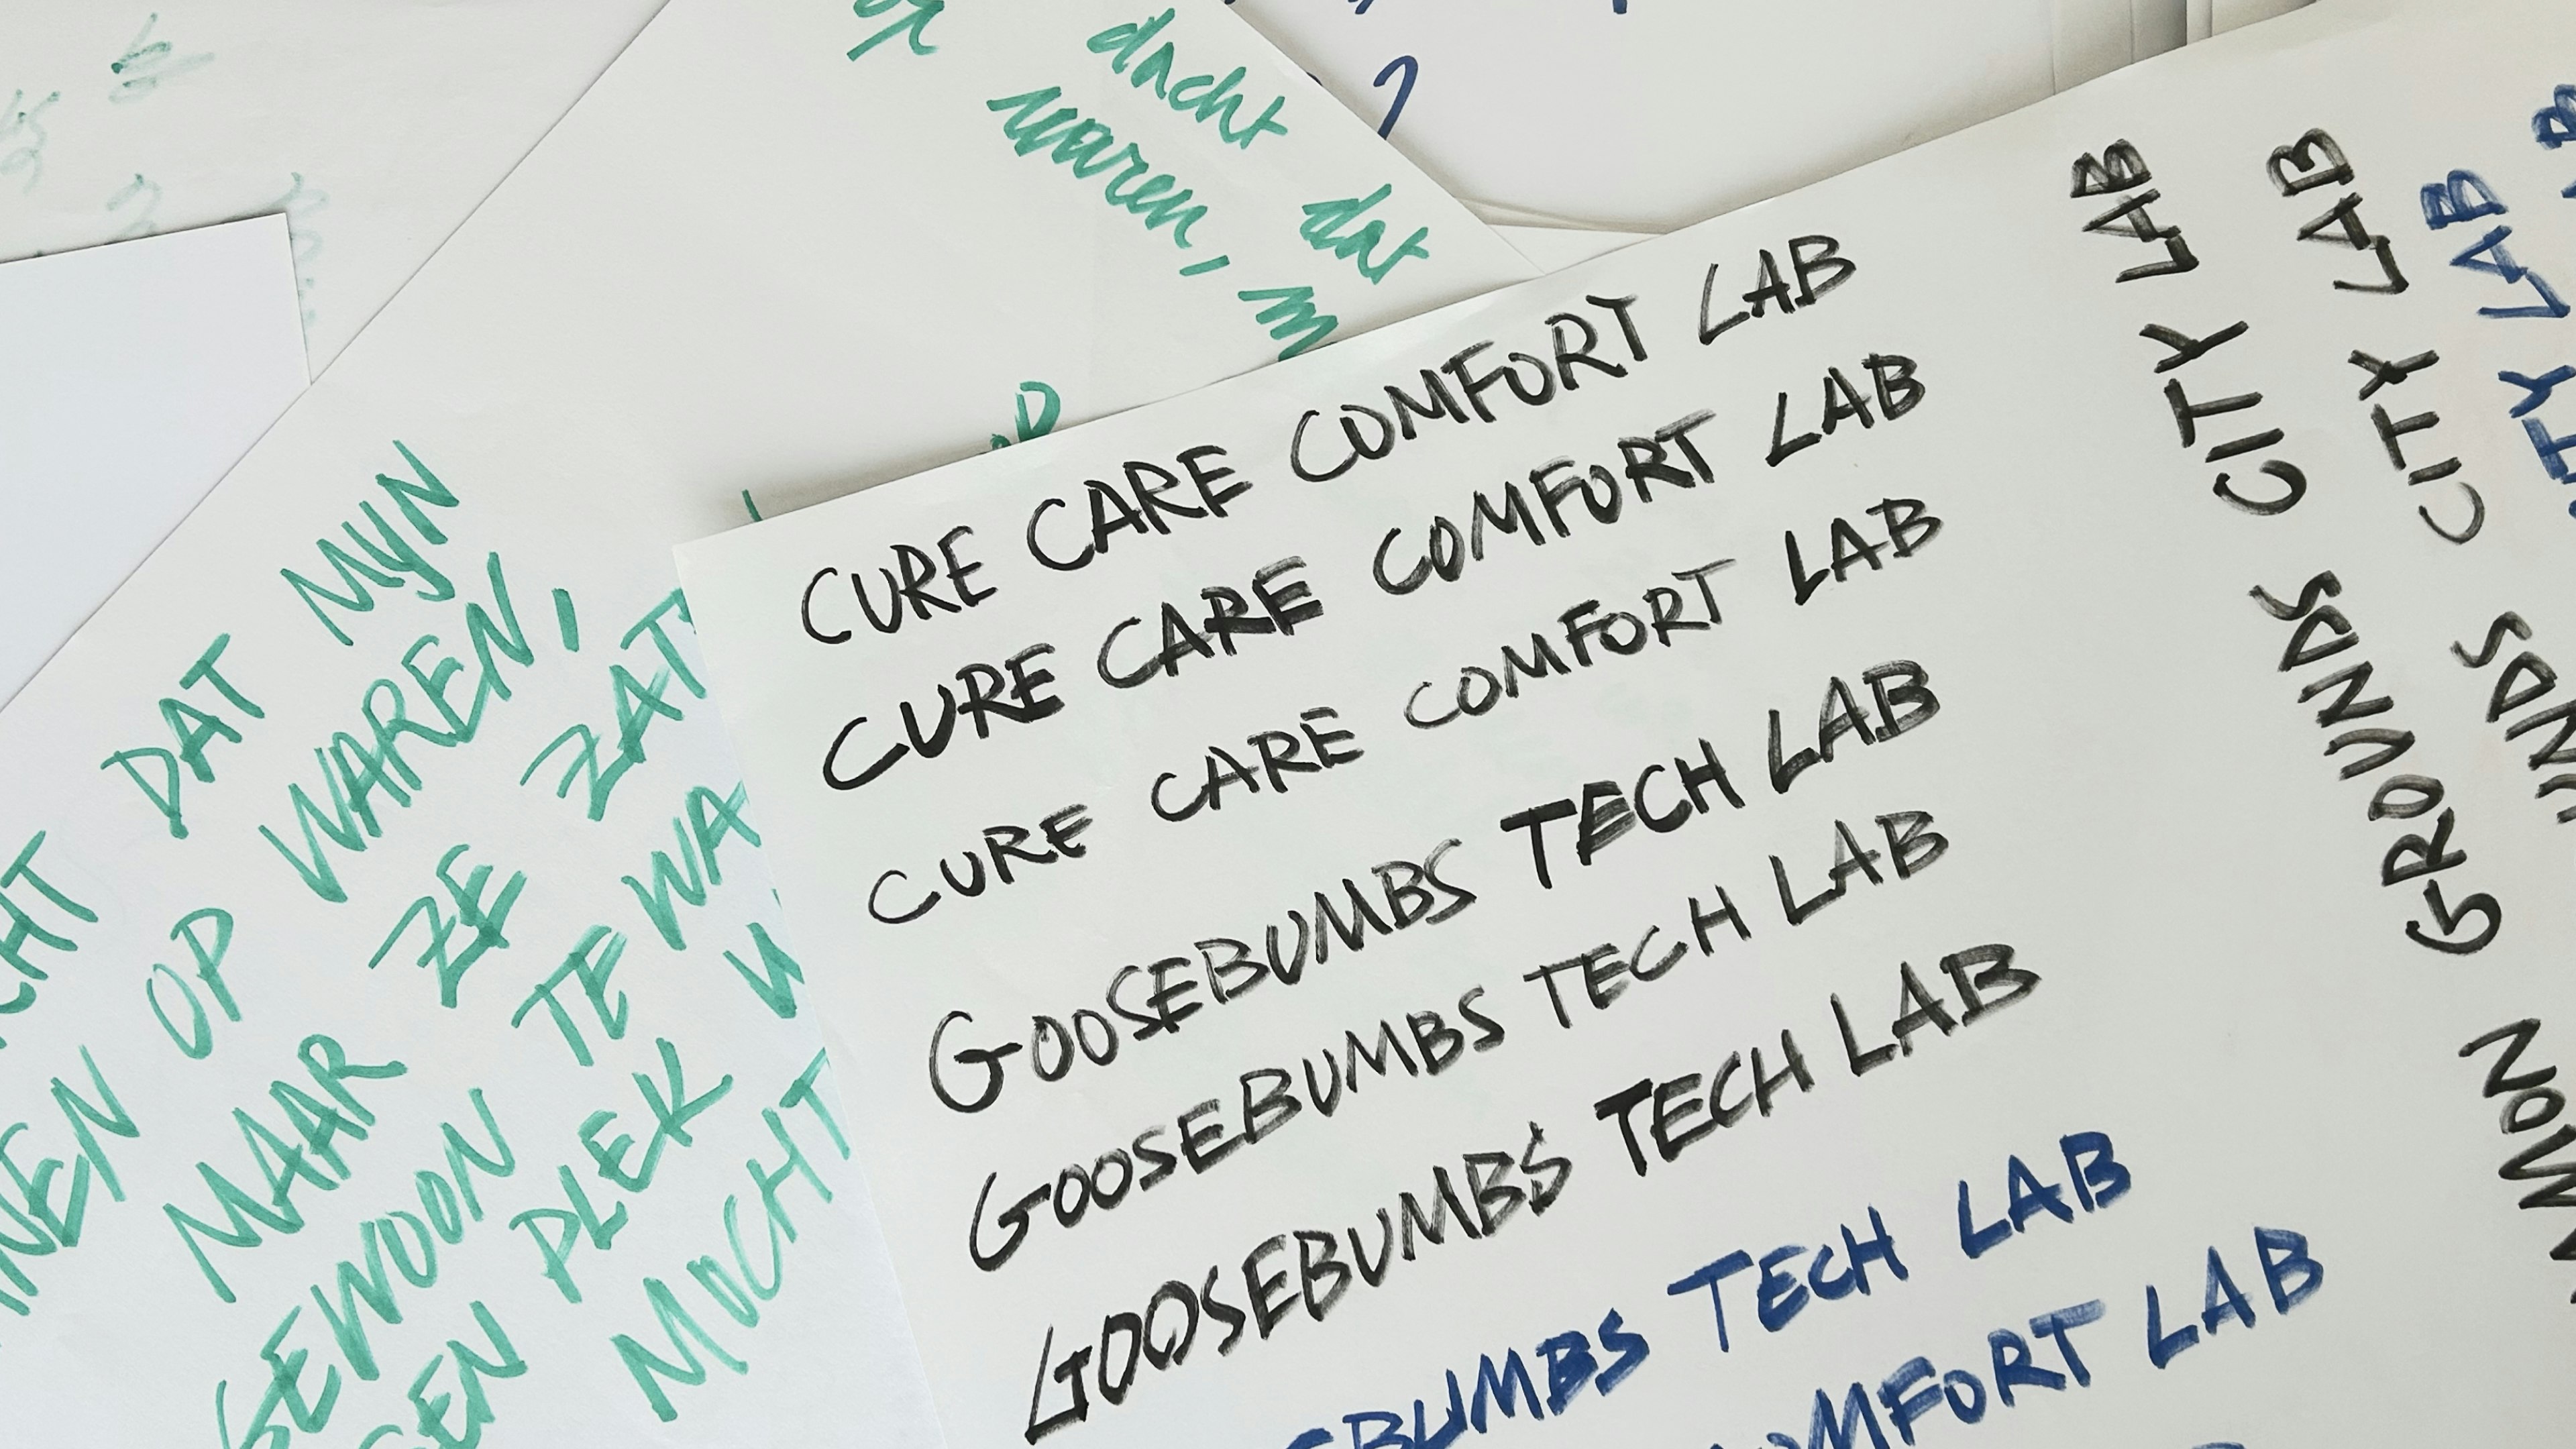 op
dacht dat
waren, m
DAT MYN
OP WAREN,
MAAR ZE ZAT
GEWOON TE WA
PLEK
MOCHT
CURE CARE COMFORT LAB
CURE CARE COMFORT LAB
CURE CARE COMFORT LAB
GOOSEBUMBS TECH LAB
GOOSEBUMBS TECH LAB
GOOSEBUMBS TECH LAB
BUMBS TECH LAB
OMFORT LAB
MON GROUNDS CITY LAB
UNDS CITY LAB
ITY LAB